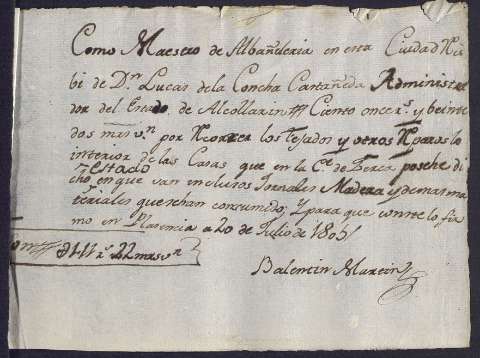 Como Maestro de Albañileria en esta Ciudad Rᶜⁱ
bi de Dⁿ Lucas de la Concha Castañeda Administra
dor del Estado de Alcollarin Ciento once rˢ y beinte
dos mrs vⁿ por Recorrer los Tejados y otros Reparos lo
interior de las Casas que en la Cᵉ de posehe di
cho Estado en que van inclusos Jornales Madera y demas ma
teriales que se han consumido; Y para que conste lo fir
mo en Plasencia a 20 de Julio de 1805
111 rˢ 22 mrs vⁿ
Balentin Martin